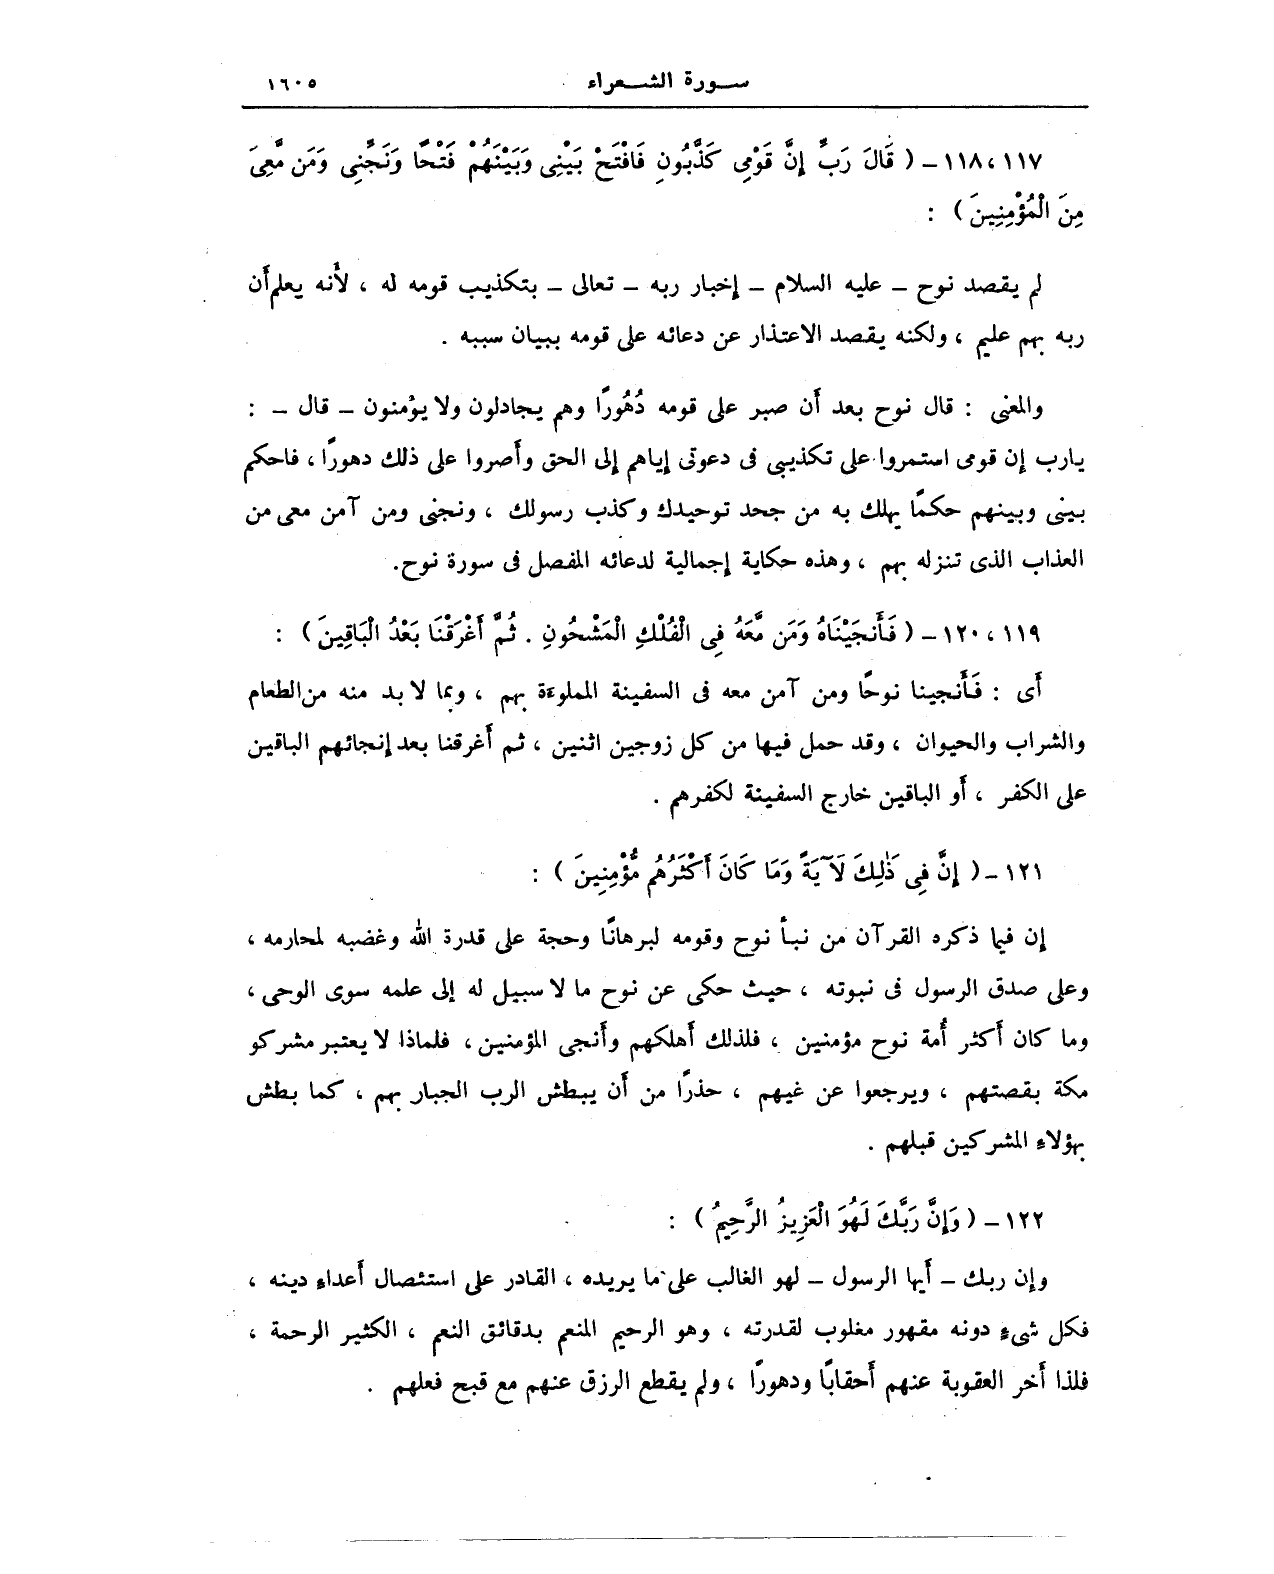 سورة الشعراء ١٦٠٥
١١٧ ، ١١٨ – ( قَالَ رَبِّ إِنَّ قَوْمِى كَذَّبُونِ فَافْتَحْ بَيْنِى وَبَيْنَهُمْ فَتْحًا وَنَجِّنِى وَمَن مَّعِىَ
مِنَ الْمُؤْمِنِينَ ) :
لم يقصد نوح – عليه السلام – إخبار ربه – تعالى – بتكذيب قومه له ، لأنه يعلم أن
ربه بهم عليم ، ولكنه يقصد الاعتذار عن دعائه على قومه ببيان سببه .
والمعنى : قال نوح بعد أن صبر على قومه دُهُورًا وهم يجادلون ولا يؤمنون – قال – :
يارب إن قومى استمروا على تكذيبى فى دعوتى إياهم إلى الحق وأصروا على ذلك دهورًا ، فاحكم
بينى وبينهم حكمًا يهلك به من جحد توحيدك وكذب رسولك ، ونجنى ومن آمن معى من
العذاب الذى تنزله بهم ، وهذه حكاية إجمالية لدعائه المفصل فى سورة نوح.
١١٩ ، ١٢٠ – ( فَأَنجَيْنَاهُ وَمَن مَّعَهُ فِى الْفُلْكِ الْمَشْحُونِ . ثُمَّ أَغْرَقْنَا بَعْدُ الْبَاقِينَ ) :
أى : فَأَنجينا نوحًا ومن آمن معه فى السفينة المملوءة بهم ، وبما لا بد منه من الطعام
والشراب والحيوان ، وقد حمل فيها من كل زوجين اثنين ، ثم أغرقنا بعد إنجائهم الباقين
على الكفر ، أو الباقين خارج السفينة لكفرهم .
١٢١ – ( إِنَّ فِى ذَٰلِكَ لَآيَةً وَمَا كَانَ أَكْثَرُهُم مُّؤْمِنِينَ ) :
إن فيما ذكره القرآن من نبأ نوح وقومه لبرهانًا وحجة على قدرة الله وغضبه لمحارمه ،
وعلى صدق الرسول فى نبوته ، حيث حكى عن نوح ما لا سبيل له إلى علمه سوى الوحى ،
وما كان أكثر أُمة نوح مؤمنين ، فلذلك أهلكهم وأنجى المؤمنين ، فلماذا لا يعتبر مشركو
مكة بقصتهم ، ويرجعوا عن غيهم ، حذرًا من أن يبطش الرب الجبار بهم ، كما بطش
بهؤلاء المشركين قبلهم .
١٢٢ – ( وَإِنَّ رَبَّكَ لَهُوَ الْعَزِيزُ الرَّحِيمُ ) :
وإن ربك – أيها الرسول – لهو الغالب على ما يريده ، القادر على استئصال أعداء دينه ،
فكل شىء دونه مقهور مغلوب لقدرته ، وهو الرحيم المنعم بدقائق النعم ، الكثير الرحمة ،
فلذا أخر العقوبة عنهم أحقابًا ودهورًا ، ولم يقطع الرزق عنهم مع قبح فعلهم .